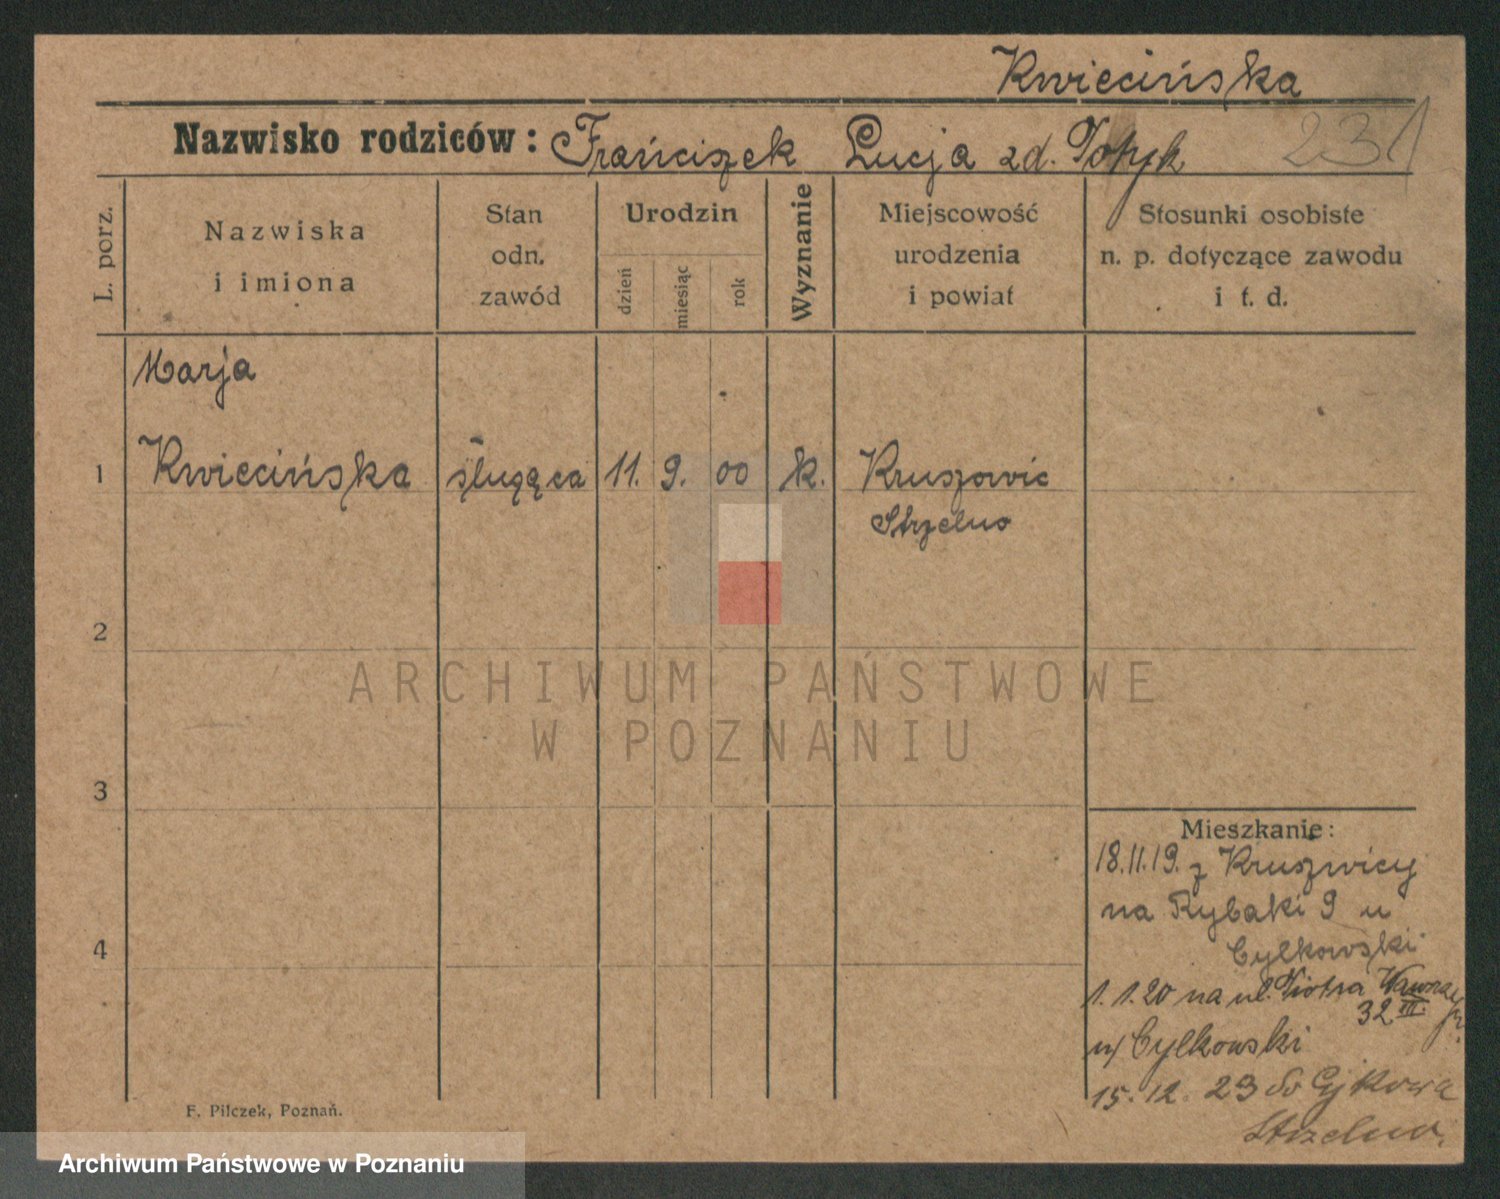 Kwiecińska
Nazwisko rodziców: Frańciszek Łucja zd.
231
L. porz.
Nazwiska
i imiona
Stan
odn.
zawód
Urodzin
dzień
miesiąc
rok
Wyznanie
Miejscowość
urodzenia
i powiat
Stosunki osobiste
n. p. dotyczące zawodu
i t. d.
Marja
1 Kwiecińska służąca 11. 9. 00 k. Kruszowic
Strzelno
2
3
4
ARCHIWUM PAŃSTWOWE
W POZNANIU
Mieszkanie:
18.11.19. z Kruszwicy
na Rybaki 9 u
Cylkowski
1.1.20 na ul. Piotra Wawrzy
32 III.
u/ Cylkowski
15. 12. 23 do
Strzelno.
F. Pilczek, Poznań.
Archiwum Państwowe w Poznaniu